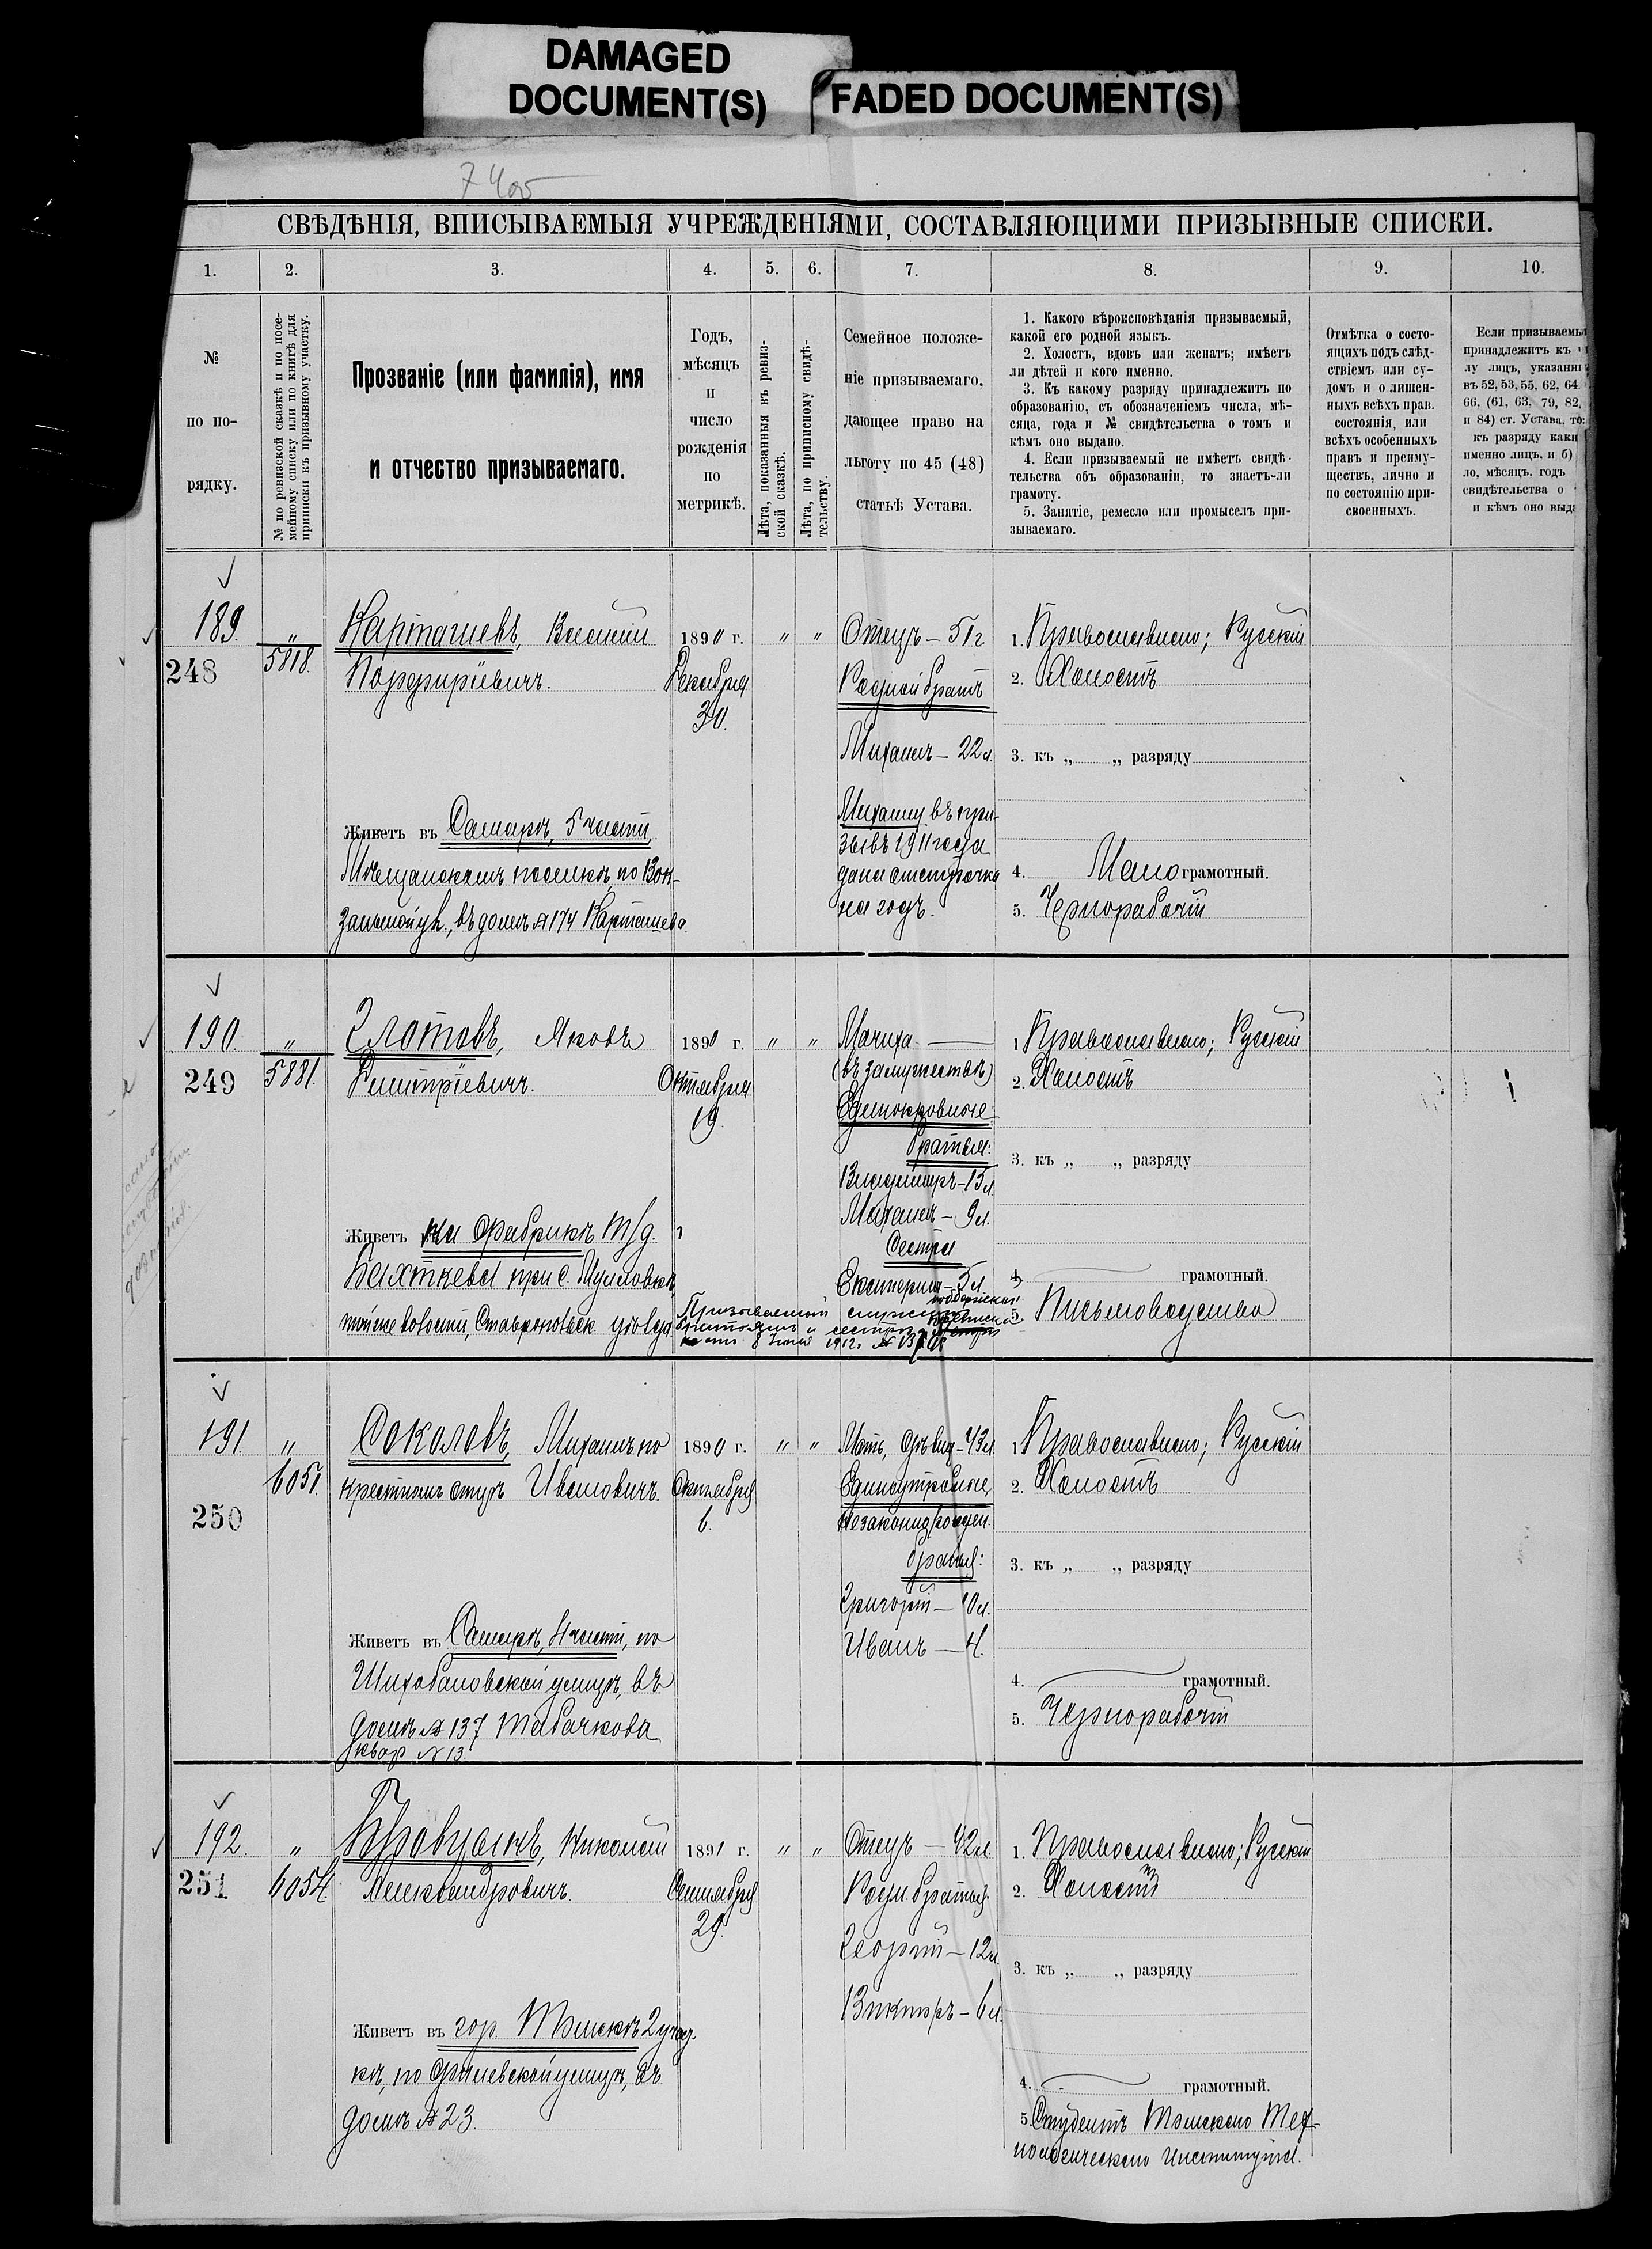 DAMAGED
DOCUMENT(S)
FADED DOCUMENT(S)
СВѢДѢНІЯ, ВПИСЫВАЕМЫЯ УЧРЕЖДЕНІЯМИ, СОСТАВЛЯЮЩИМИ ПРИЗЫВНЫЕ СПИСКИ.
1.
2.
3.
4.
5.
6.
7.
8.
9.
10.
№
по по-
рядку.
№ по ревизской сказкѣ и по посе-
мейному списку или по книгѣ для
приписки къ призывному участку.
Прозваніе (или фамилія), имя
и отчество призываемаго.
Годъ,
мѣсяцъ
и
число
рожденія
по
метрикѣ.
Лѣта, показанныя въ ревиз-
ской сказкѣ.
Лѣта, по приписному свидѣ-
тельству.
Семейное положе-
ніе призываемаго,
дающее право на
льготу по 45 (48)
статьѣ Устава.
1. Какого вѣроисповѣданія призываемый,
какой его родной языкъ.
2. Холостъ, вдовъ или женатъ; имѣетъ
ли дѣтей и кого именно.
3. Къ какому разряду принадлежитъ по
образованію, съ обозначеніемъ числа, мѣ-
сяца, года и № свидѣтельства о томъ и
кѣмъ оно выдано.
4. Если призываемый не имѣетъ свидѣ-
тельства объ образованіи, то знаетъ-ли
грамоту.
5. Занятіе, ремесло или промыселъ при-
зываемаго.
Отмѣтка о состо-
ящихъ подъ слѣд-
ствіемъ или су-
домъ и о лишен-
ныхъ всѣхъ прав.
состоянія, или
всѣхъ особенныхъ
правъ и преиму-
ществъ, лично и
по состоянію при-
своенныхъ.
Если призываемы
принадлежитъ къ
лу лицъ, указанн
въ 52, 53, 55, 62, 64.
66, (61, 63, 79, 82,
и 84) ст. Устава, то:
къ разряду каки
именно лицъ, и б)
ло, мѣсяцъ, годъ
свидѣтельства о
и кѣмъ оно выд
189.
248
"
5818.
Карташевъ, Василій
Порфиріевичъ.
Живетъ въ Самарѣ, 5 части,
Мѣщанскомъ поселкѣ, по Вок-
зальной ул., въ домѣ № 174 Карташева.
1890 г.
Декабря
30.
" "
Отецъ — 51 г
Родной братъ
Михаилъ — 22 л.
Михаилу въ при-
зывъ 1911 года
дана отстрочка
на годъ.
1. Православнаго; Русскій
2. Холостъ
3. къ „ „ разряду
4. Мало грамотный.
5. Чернорабочій
190.
249
"
5881.
Глотовъ, Яковъ
Дмитріевичъ.
Живетъ на фабрикѣ Т/д.
Бахтеева при с. Мулловкѣ,
той же волости, Ставропольск. уѣзда
1890 г.
Октября
19.
" "
Мачиха —
(въ замужествѣ)
Единокровные
братья:
Владиміръ — 13 л
Михаилъ — 9 л.
Сестра
Екатерина — 5 л.
Призываемый
8 Іюня 1912 г. №
1. Православнаго; Русскій
2. Холостъ
3. къ „ „ разряду
4. грамотный.
5. Письмоводство
191.
250
"
6051.
Соколовъ, Михаилъ по
крестному отцу Ивановичъ.
Живетъ въ Самарѣ, 4 части, по
Шихобаловской улицѣ, въ
домѣ № 137 Табачкова
квар № 13.
1890 г.
Октября
6.
" "
Мать, дѣвица — 43 л
Единоутробные,
незаконнорожден.
братья:
Григорій — 10 л.
Иванъ — 4.
1. Православнаго; Русскій
2. Холостъ
3. къ „ „ разряду
4. грамотный.
5. Чернорабочій
192.
251
"
6054.
Николай
Александровичъ.
Живетъ въ гор. Томскѣ 2 учас.
кѣ, по улицѣ, въ
домѣ № 23.
1891 г.
Сентября
29.
" "
Отецъ — 42 л.
Родн. братья
Георгій — 12 л.
Викторъ — 6 л.
1. Православнаго; Русскій
2. Холостъ
3. къ „ „ разряду
4. грамотный.
5. Студентъ Томскаго Тех-
нологическаго Института.